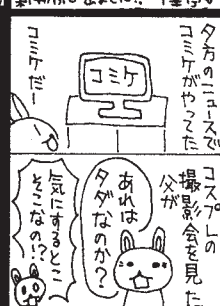 夕方のニュースで
コミケがやってた
コミケ
コミケだー
コスプレの
撮影会を見た
父が
あれは
タダなのか?
気にするとこ
そこなの!?